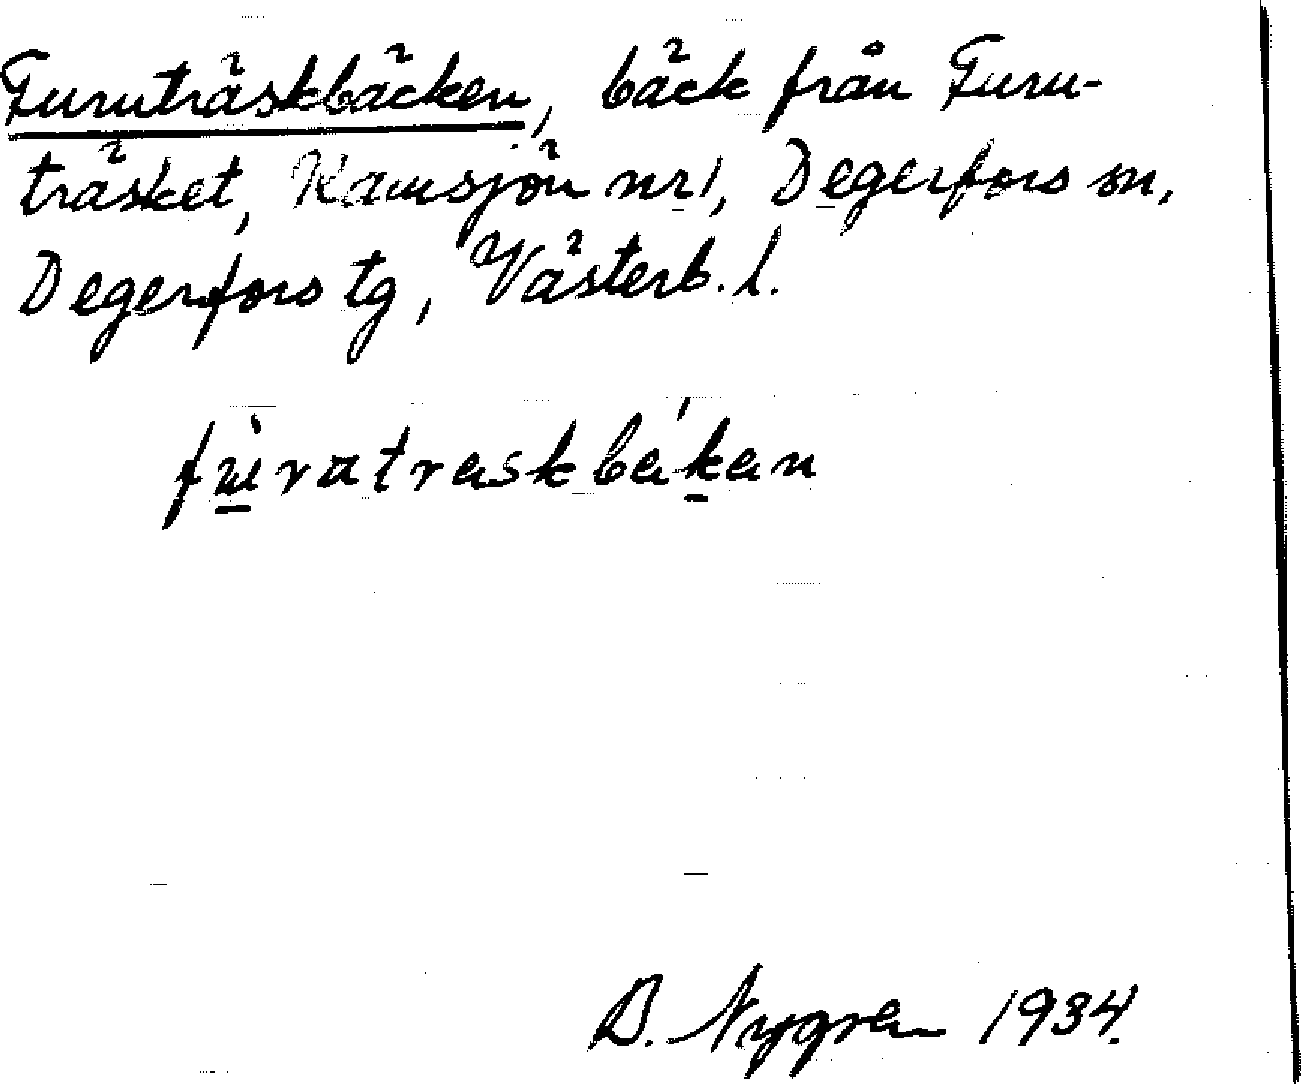 Furuträskbäcken, bäck från Furu-
träsket, Ramsjön nr 1, Degerfors sn,
Degerfors tg, Västerb. l.
fu̠̇ratraskbák̠an
B. Nygren 1934.